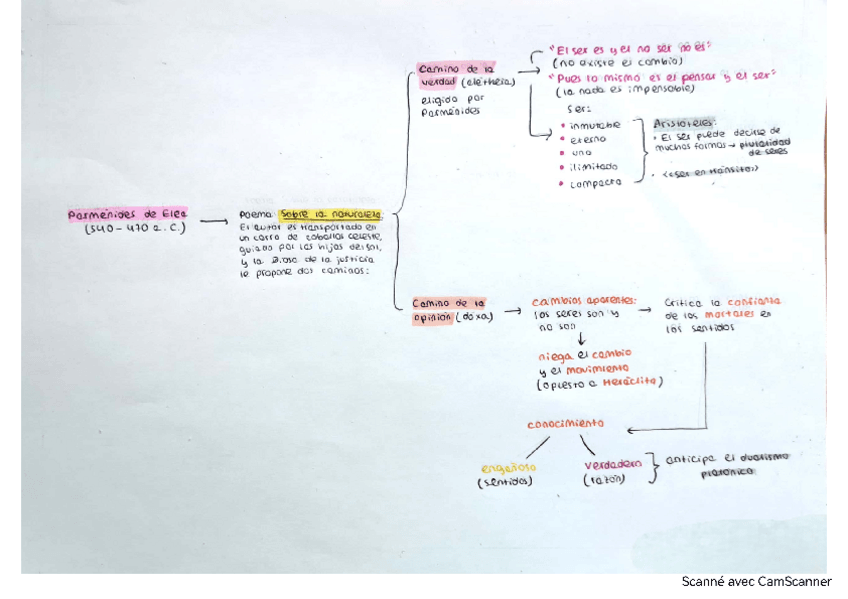 Parménides de Elea
(540-470 a.C.)
Poema: Sobre la naturaleza:
El autor es transportado en
un carro de caballos celeste,
guiado por las hijas del sol,
y la Diosa de la justicia
le propone dos caminos:
Camino de la
verdad (alétheia)
eligido por
Parménides
"El ser es y el no ser no es"
(no existe el cambio)
"Pues lo mismo es el pensar y el ser"
(la nada es impensable)
Ser:
• inmutable
• eterno
• uno
• ilimitado
• compacto
Aristóteles:
• El ser puede decirse de
muchas formas → pluralidad
de seres
• <<ser en tránsito>>
Camino de la
opinión (doxa)
cambios aparentes:
los seres son y
no son
niega el cambio
y el movimiento
(opuesto a Heráclito)
Critica la confianza
de los mortales en
los sentidos
conocimiento
engañoso
(sentidos)
verdadero
(razón)
anticipa el dualismo
platónico
Scanné avec CamScanner